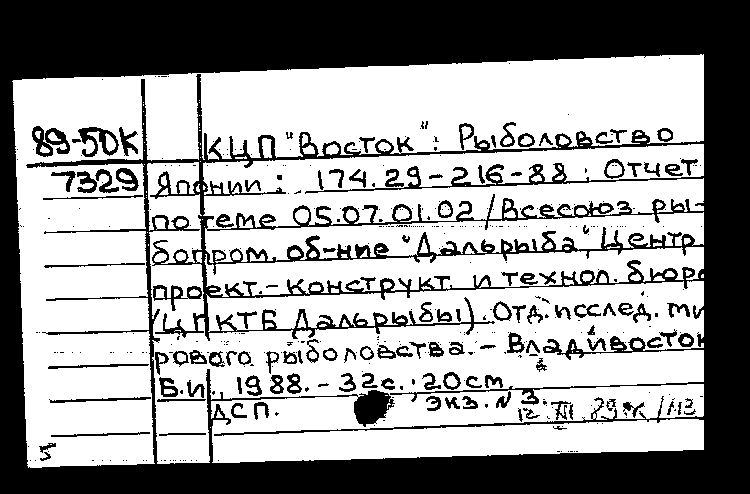 89-50К КЦП "Восток": Рыболовство
7329 Японии: 174.29-216-88: Отчет
по теме 05.07.01.02 /Всесоюз. ры-
бопром. об-ние "Дальрыба", Центр.
проект.-конструкт. и технол. бюро
(ЦПКТБ Дальрыбы). Отд. исслед. ми
рового рыболовства. - Владивосток
Б.и., 1988. - 32с.; 20см.
ДСП. экз. N 3.
5 12. XII. 89